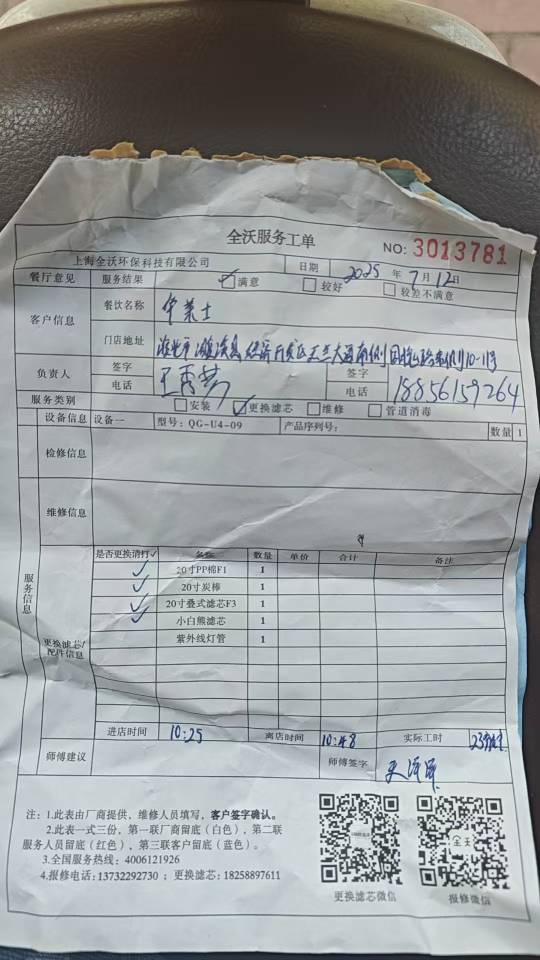 全沃服务工单
NO: 3013781
上海全沃环保科技有限公司 日期 2025年7月12日
餐厅意见 服务结果 ☑满意 □较好 □较差不满意
客户信息 餐饮名称 华莱士
门店地址 淮北市濉溪县经济开发区 大道南侧 路东侧10-11号
负责人 签字 签字
电话 电话 18856159264
服务类别 □安装 ☑更换滤芯 □维修 □管道消毒
服务信息
设备信息 设备一 型号: QG-U4-09 产品序列号: 数量 1
检修信息
维修信息
更换滤芯/配件信息
是否更换请打✓ 名称 数量 单价 合计 备注
✓ 20寸PP棉F1 1
✓ 20寸炭棒 1
✓ 20寸叠式滤芯F3 1
✓ 小白熊滤芯 1
紫外线灯管 1
进店时间 10:25 离店时间 10:48 实际工时 23分钟
师傅建议 师傅签字
注: 1.此表由厂商提供，维修人员填写，客户签字确认。
2.此表一式三份，第一联厂商留底（白色），第二联
服务人员留底（红色），第三联客户留底（蓝色）。
3.全国服务热线: 4006121926
4.报修电话: 13732292730；更换滤芯: 18258897611
更换滤芯微信 报修微信
全沃